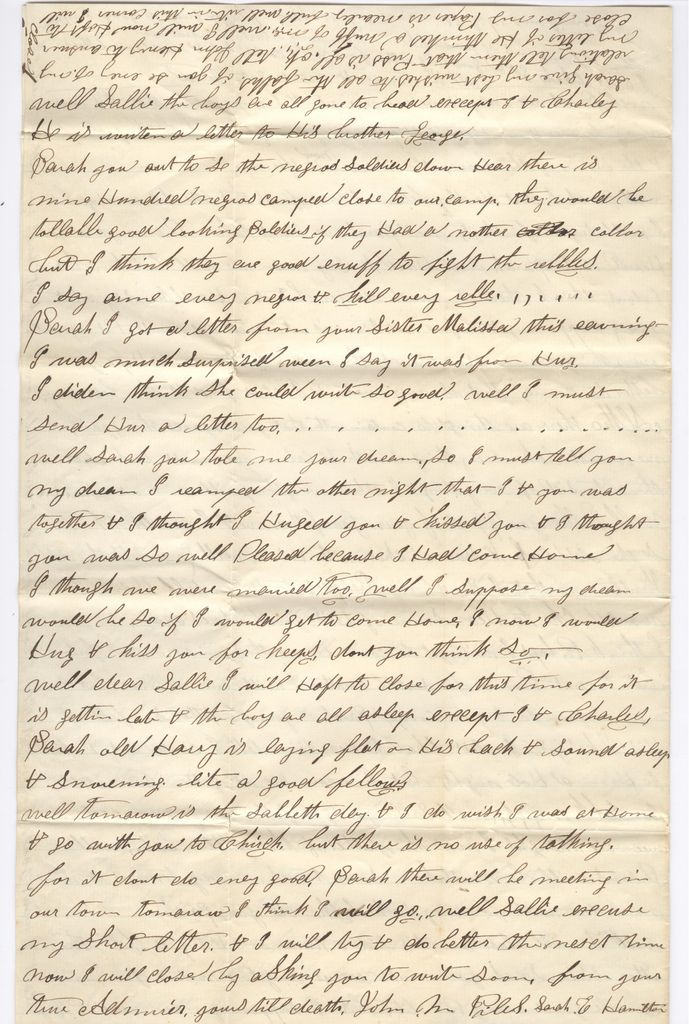 well Sallie the boys are all gone to bead except I & Charley
He is writen a letter to His brother George.
Sarah you out to se the negros soldiers down Hear there is
nine Hundred negros camped close to our camp. they would be
tollable good looking Soldiers if they Had a nother collor
but I think they are good enuff to fight the rebbles.
I say arme every negro & kill every rebble.
Sarah I got a letter from your Sister Malissa this eavning
I was much Surprised ween I say it was from Hur.
I diden think She could write so good. well I must
send Hur a letter too. . . . . . . . . . . . .
well Sarah you tole me your dream, So I must tell you
my dream I reamped the other night that I & you was
together & I thought I Huged you & kissed you & I thought
you was So well Pleased because I Had come Home
I though we were married too, well I Suppose my dream
would be so if I would get to come Home, I now I would
Hug & kiss you for keeps, dont you think So.
well dear Sallie I will Haft to close for this time for it
is gettin late & the boy are all asleep except I & Charles,
Sarah old Harry is laying flat on His back & Sound asleep
& Snorening like a good fellow,
well tomarow is the Sabbeth day. & I do wish I was at Home
& go with you to Church. but there is no use of talking.
for it dont do eney good, Sarah there will be meeting in
our town tomarow I think I will go., well Sallie excuse
my Short letter. & I will try & do better the next time
now I will close by asking you to write Soon, from your
true Admirer, yours till death, John M Piles. Sarah E Hamilton
Sarah give my best wishes to all the folks if you se eney of my
relations tell them that Puss is all ok, tell John Henry to answer
my letter if He thinks a nuff of me, well I will now stop
close for my Paper is nearly full, well in this corner I will